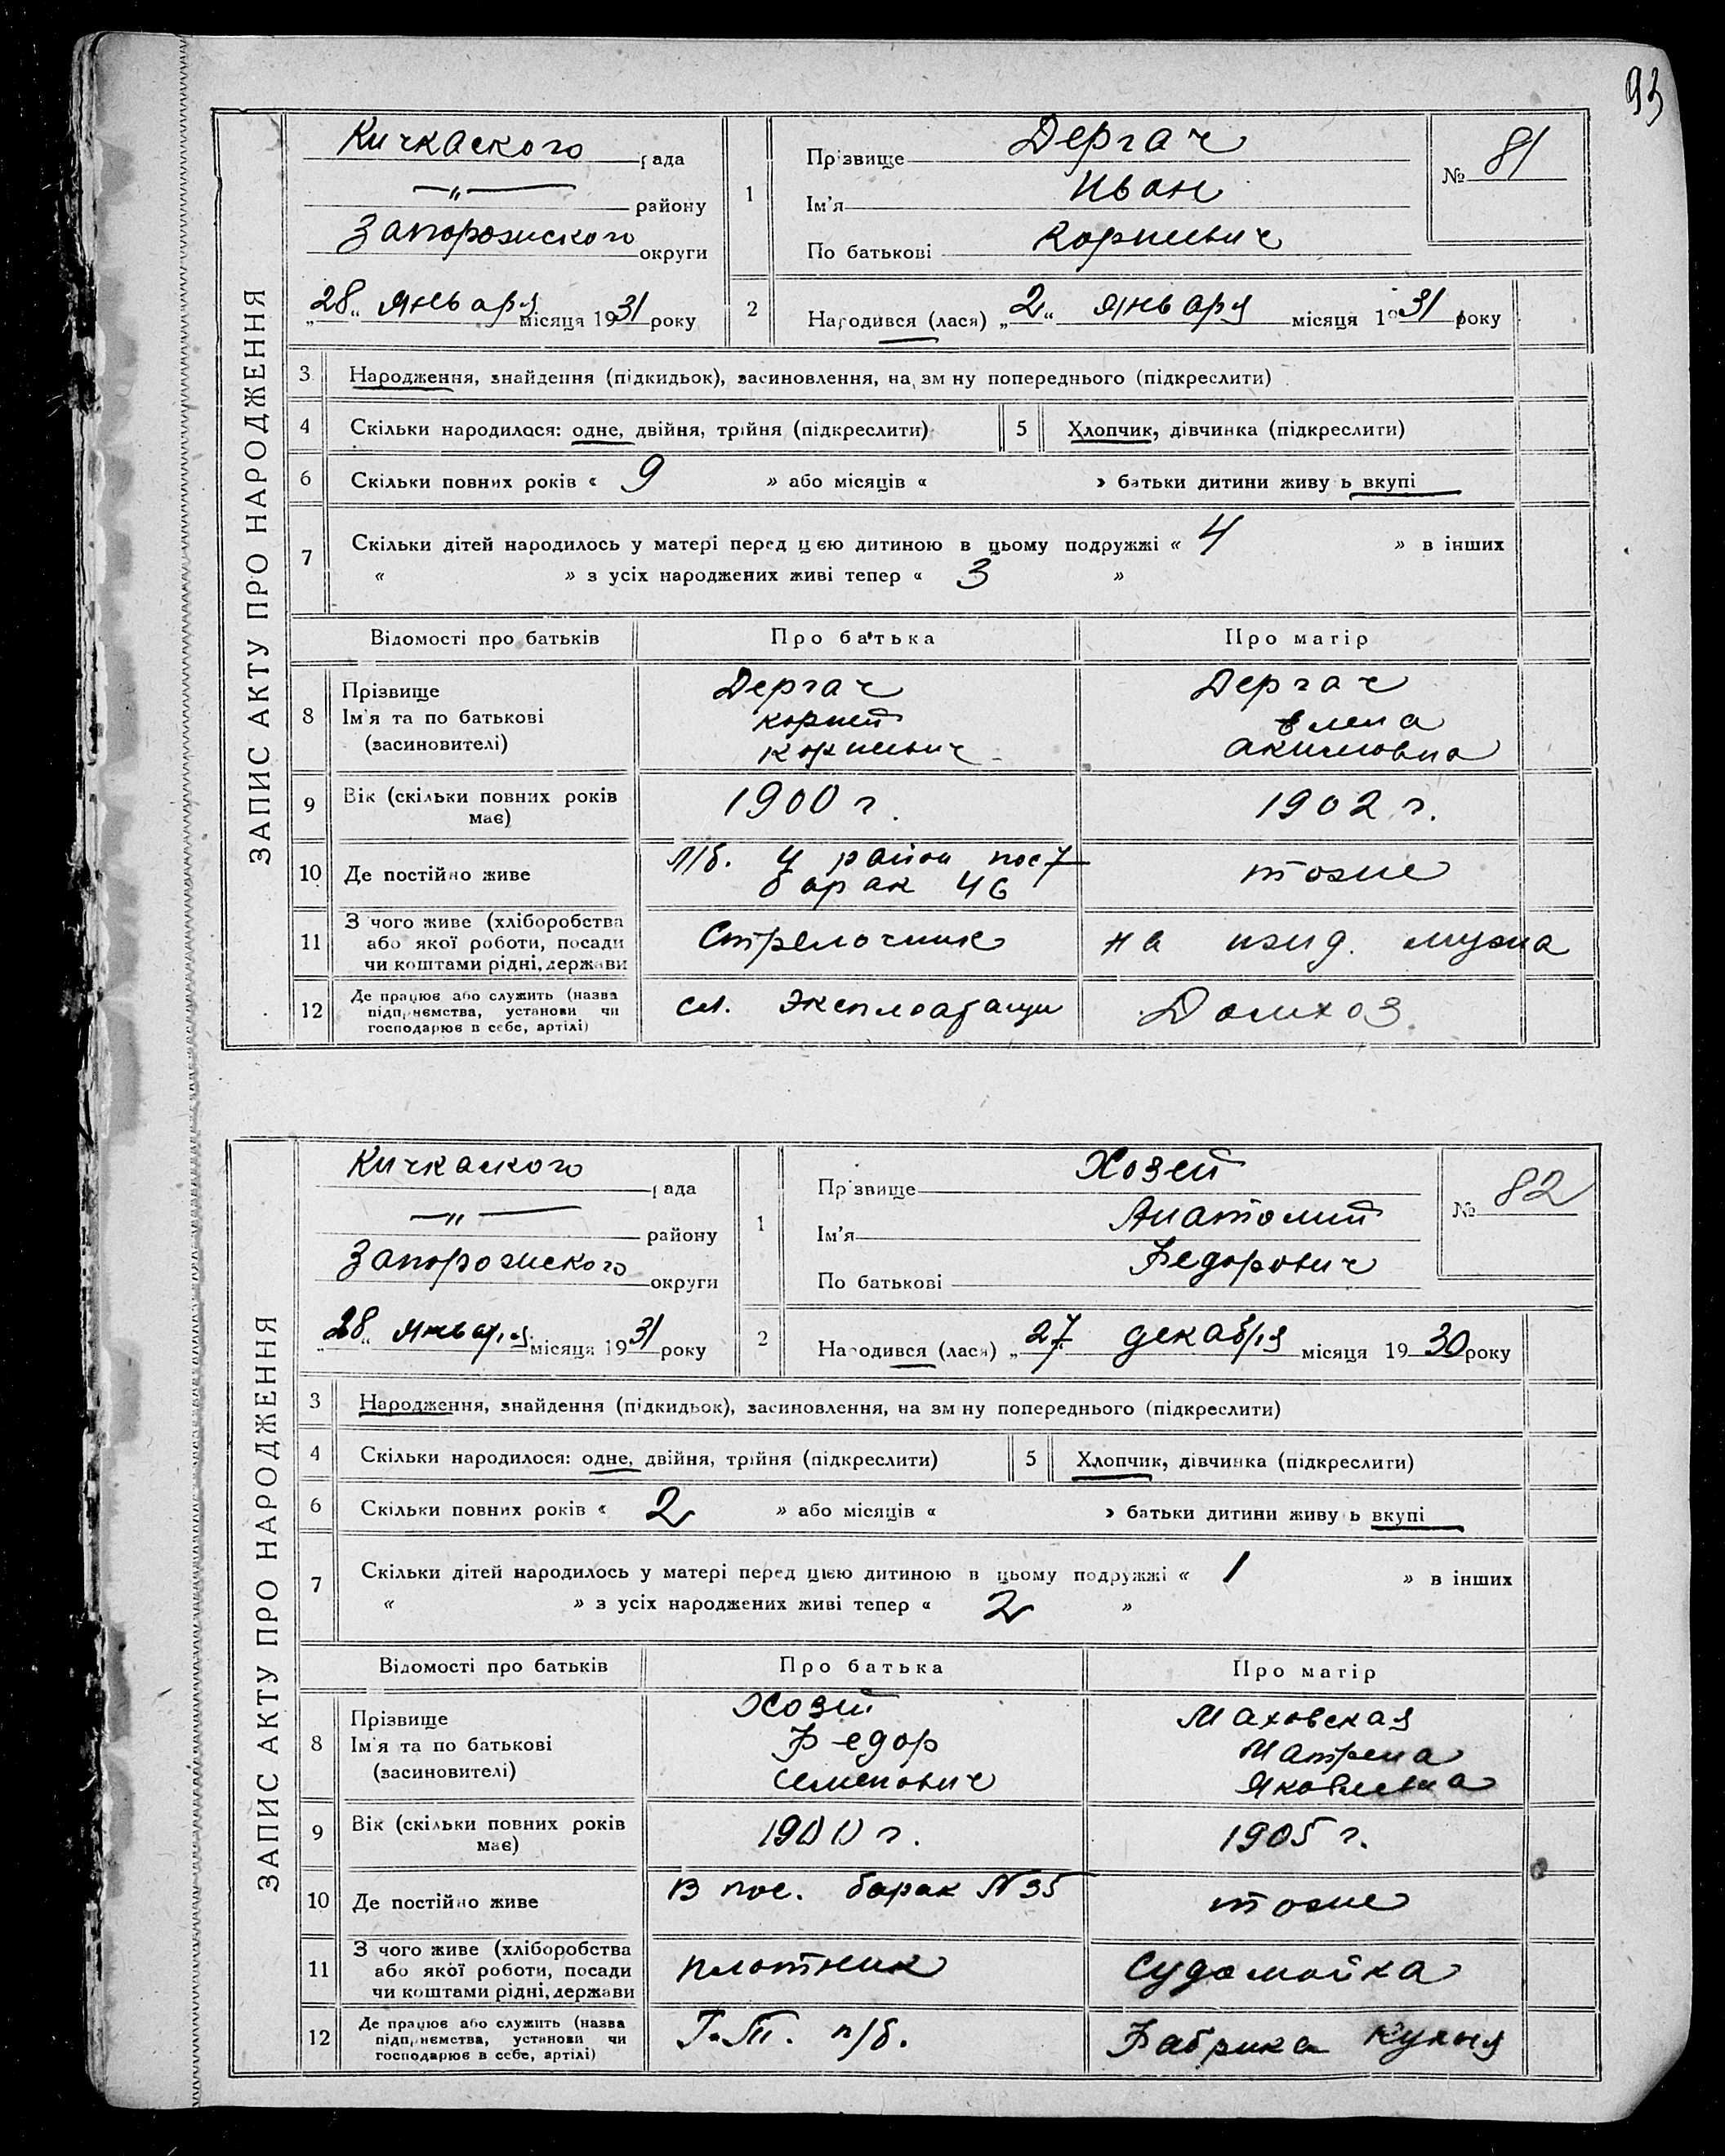 93
ЗАПИС АКТУ ПРО НАРОДЖЕННЯ
Кичкаского рада
—"— району
Запорожского округи
„28“ Января місяця 1931 року
1
Прізвище Дергач
Ім'я Иван
По батькові Корнеевич
№ 81
2
Народився (лася) „2“ января місяця 1931 року
3 Народження, знайдення (підкидьок), засиновлення, на зміну попереднього (підкреслити)
4 Скільки народилося: одне, двійня, трійня (підкреслити) 5 Хлопчик, дівчинка (підкреслити)
6 Скільки повних років « 9 » або місяців « » батьки дитини живуть вкупі
7 Скільки дітей народилось у матері перед цією дитиною в цьому подружжі « 4 » в інших
« » з усіх народжених живі тепер « 3 »
Відомості про батьків Про батька Про матір
8 Прізвище
Ім'я та по батькові
(засиновителі)
Дергач
Корней
Корнеевич
Дергач
Елена
Акимовна
9 Вік (скільки повних років
має)
1900 г. 1902 г.
10 Де постійно живе
П/б. 4 район пос 7
барак 46
тоже
11 З чого живе (хліборобства
або якої роботи, посади
чи коштами рідні, держави
Стрелочник на ижд. мужа
12 Де працює або служить (назва
підприємства, установи чи
господарює в себе, артілі)
сл. Эксплоатации Домхоз
ЗАПИС АКТУ ПРО НАРОДЖЕННЯ
Кичкаского рада
—"— району
Запорожского округи
„28“ Января місяця 1931 року
1
Прізвище Хозей
Ім'я Анатолий
По батькові Федорович
№ 82
2
Народився (лася) „27 декабря місяця 1930 року
3 Народження, знайдення (підкидьок), засиновлення, на зміну попереднього (підкреслити)
4 Скільки народилося: одне, двійня, трійня (підкреслити) 5 Хлопчик, дівчинка (підкреслити)
6 Скільки повних років « 2 » або місяців « » батьки дитини живуть вкупі
7 Скільки дітей народилось у матері перед цією дитиною в цьому подружжі « 1 » в інших
« » з усіх народжених живі тепер « 2 »
Відомості про батьків Про батька Про матір
8 Прізвище
Ім'я та по батькові
(засиновителі)
Хозей
Федор
Семенович
Маховская
Матрена
Яковлевна
9 Вік (скільки повних років
має)
1900 г. 1905 г.
10 Де постійно живе
13 пос. барак N 35 тоже
11 З чого живе (хліборобства
або якої роботи, посади
чи коштами рідні, держави
плотник Судомойка
12 Де працює або служить (назва
підприємства, установи чи
господарює в себе, артілі)
Г.Т. п/б. Фабрика Кухня